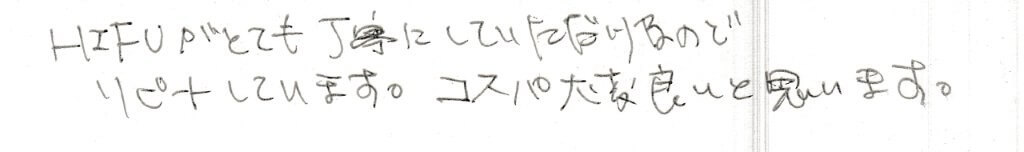 HIFUがとても丁寧にしていただけるので
リピートしています。コスパ大変良いと思います。